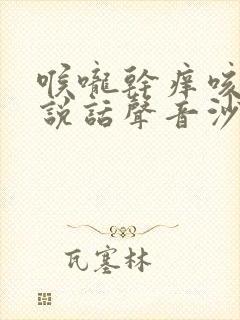 喉嚨幹癢咳
說話聲音沙
瓦塞林